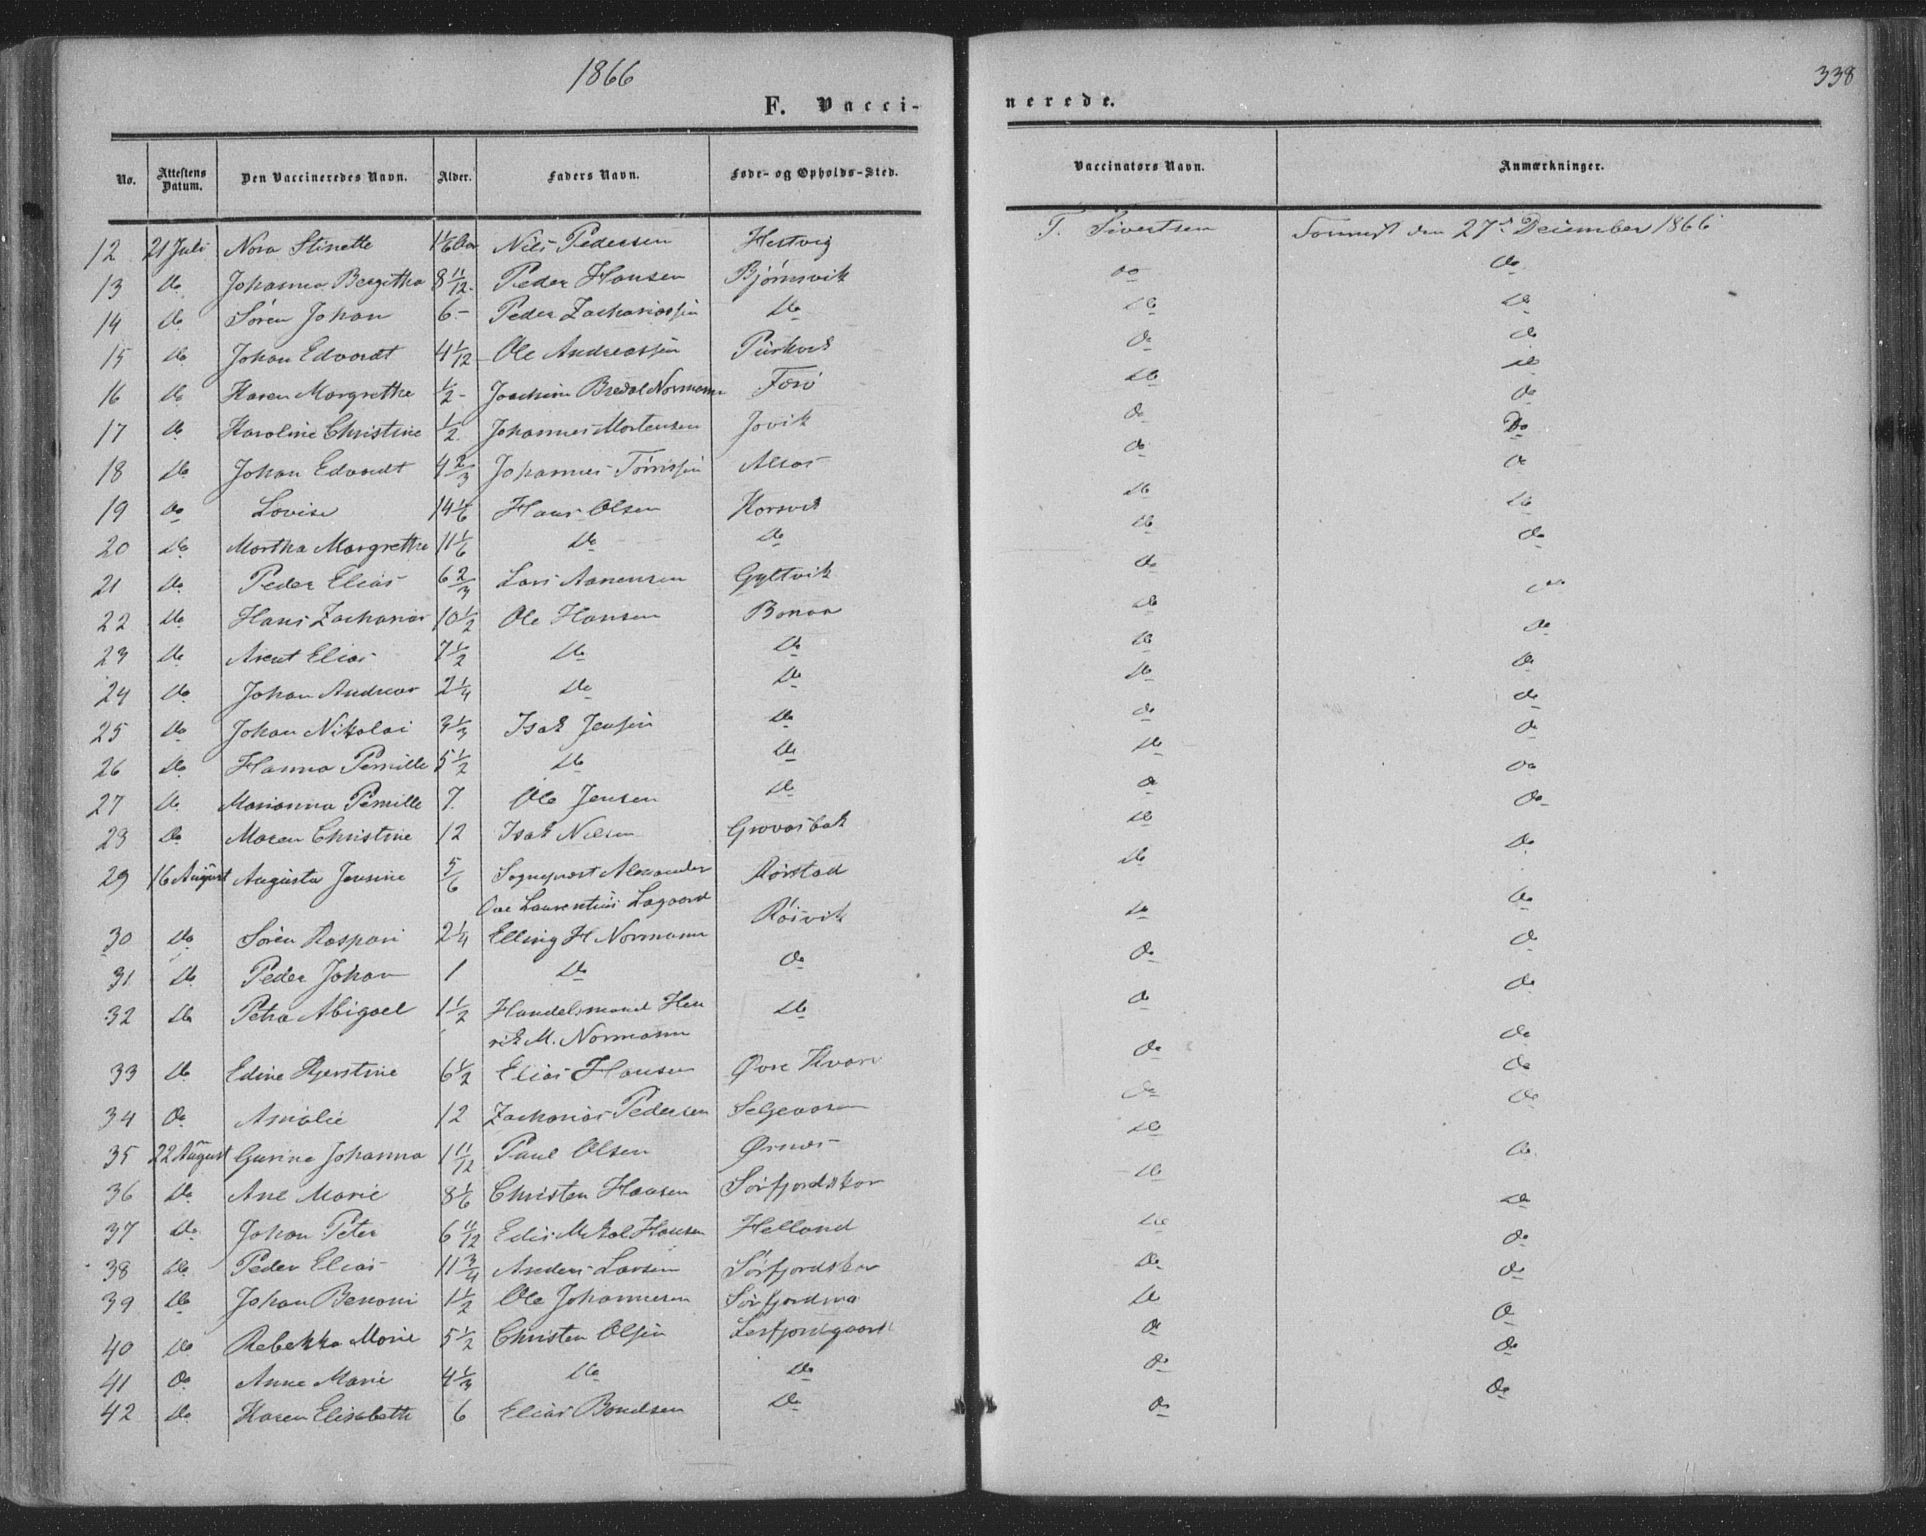 1866
338
F. Vacci-
nerede.
No. Attestens Datum. Den Vaccineredes Navn. Alder. Faders Navn. Føde- og Opholds-Sted. Vaccinators Navn. Anmærkninger.
12 21 Juli Nora Stinette 1 1/6 Nils Pedersen Hestvig T. Sivertsen den 27de December 1866
13 Do Johanna Bergitha 8 11/12 Peder Hansen Bjørnsvik Do Do
14 Do Søren Johan 6 - Peder Zachariassen Do Do Do
15 Do Johan Edvardt 4 1/12 Ole Andreassen Do Do
16 Do Karen Margrethe 1/2 - Joachim Bredal Normann Do Do
17 Do Karoline Christine 1/2 Johannes Mortensen Jovik Do Do
18 Do Johan Edvardt 4 2/3 Johannes Tørrissen Alsos Do Do
19 Do Lovise 14 1/6 Hans Olsen Korsvik Do Do
20 Do Martha Margrethe 11 1/6 Do Do Do Do
21 Do Peder Elias 6 2/3 Lars Aanensen Gyltvik Do Do
22 Do Hans Zacharias 10 1/2 Ole Hansen Bonaa Do Do
23 Do Arent Elias 7 1/2 Do Do Do Do
24 Do Johan Andreas 2 1/4 Do Do Do Do
25 Do Johan Nikolai 3 1/3 Isak Jensen Do Do Do
26 Do Hanna Pernille 5 1/2 Do Do Do Do
27 Do Marianna Pernille 7. Ole Jensen Do Do Do
28 Do Maren Christine 12 Isak Nilsen Do Do
29 16 August Augusta Jensine 5/6 Sognepræst Alexander Rørstad Do Do
Ove Laurentius Lagaard
30 Do Søren Kaspari 2 1/4 Elling H Normann Røsvik Do Do
31 Do Peder Johan 1 Do Do Do Do
32 Do Petra Abigael 1 1/2 Handelsmand Hen Do Do Do
rik M. Normann
33 Do Edine Kjerstine 6 1/2 Elias Hansen Øvre Kvarv Do Do
34 Do Amalie 12 Zacharias Pedersen Do Do
35 22 August Gurine Johanna 1 11/12 Paul Olsen Ørnes Do Do
36 Do Ane Marie 8 1/6 Christen Hansen Sørfjordskar Do Do
37 Do Johan Peter 6 11/12 Hansen Helland Do Do
38 Do Peder Elias 11 3/4 Anders Larsen Sørfjordskar Do Do
39 Do Johan Benoni 1 1/2 Ole Johannesen Sørfjordmo Do Do
40 Do Rebekka Marie 5 1/2 Christen Olsen Do Do
41 Do Anne Marie 4 1/3 Do Do Do Do
42 Do Karen Elisabeth 6 Elias Bendsen Do Do Do